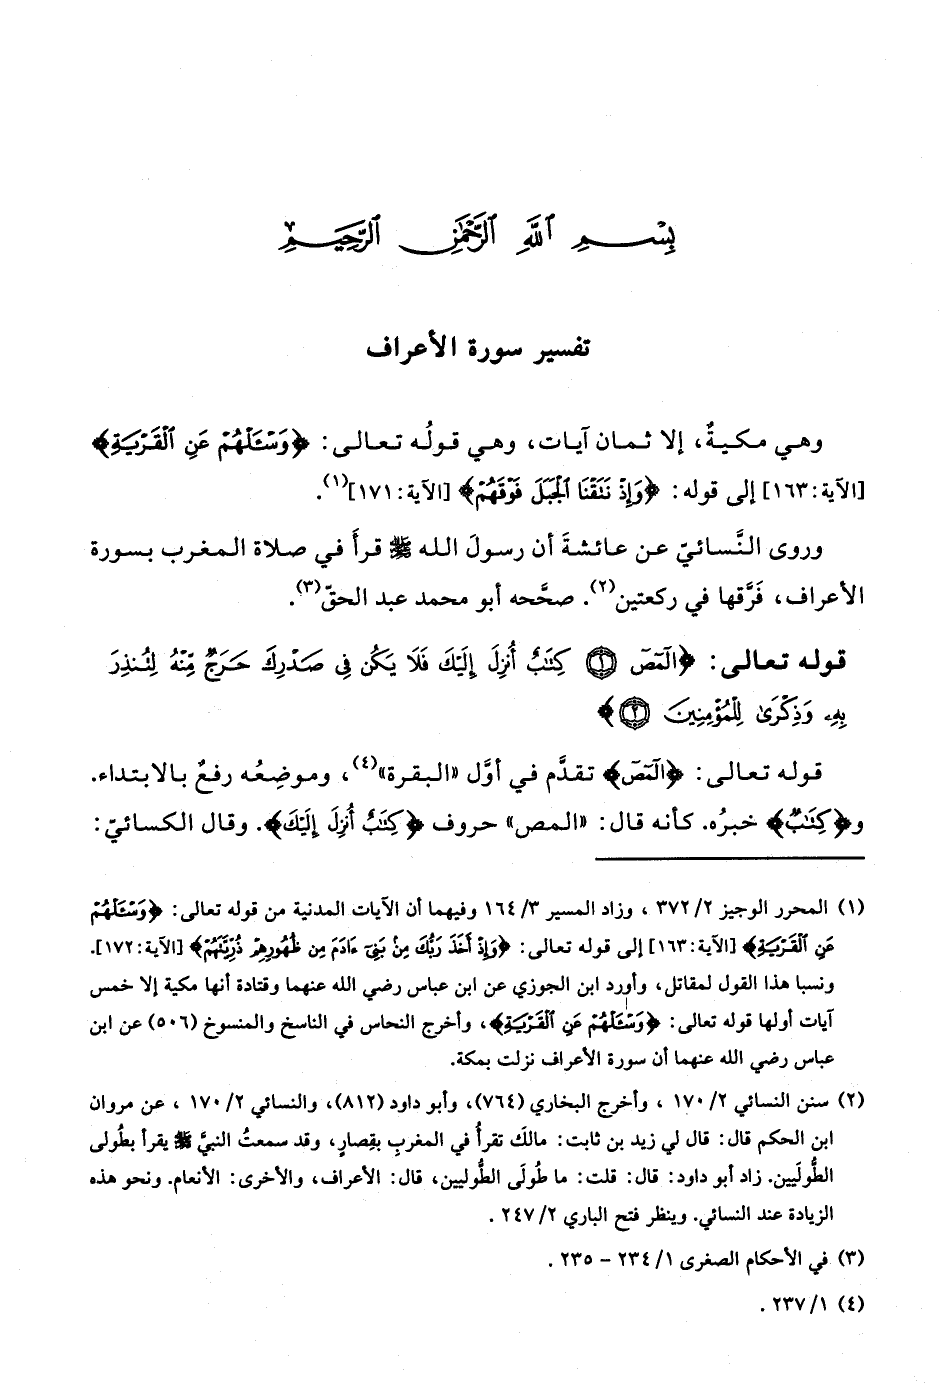 بِسْمِ ٱللَّهِ ٱلرَّحْمَٰنِ ٱلرَّحِيمِ
تفسير سورة الأعراف
وهي مكيةٌ، إلا ثمان آيات، وهي قولُه تعالى: ﴿وَسْـَٔلْهُمْ عَنِ ٱلْقَرْيَةِ﴾
[الآية: ١٦٣] إلى قوله: ﴿وَإِذْ نَتَقْنَا ٱلْجَبَلَ فَوْقَهُمْ﴾ [الآية: ١٧١](١).
وروى النَّسائيّ عن عائشةَ أن رسولَ الله ﷺ قرأَ في صلاة المغرب بسورة
الأعراف، فَرَّقها في ركعتين(٢). صحَّحه أبو محمد عبد الحقّ(٣).
قوله تعالى: ﴿الٓمٓصٓ ١ كِتَٰبٌ أُنزِلَ إِلَيْكَ فَلَا يَكُن فِى صَدْرِكَ حَرَجٌ مِّنْهُ لِتُنذِرَ
بِهِۦ وَذِكْرَىٰ لِلْمُؤْمِنِينَ ٢﴾
قوله تعالى: ﴿الٓمٓصٓ﴾ تقدَّم في أوَّل «البقرة»(٤)، وموضِعُه رفعٌ بالابتداء.
و﴿كِتَٰبٌ﴾ خبرُه. كأنه قال: «المص» حروف ﴿كِتَٰبٌ أُنزِلَ إِلَيْكَ﴾. وقال الكسائيّ:
(١) المحرر الوجيز ٢/ ٣٧٢ ، وزاد المسير ٣/ ١٦٤ وفيهما أن الآيات المدنية من قوله تعالى: ﴿وَسْـَٔلْهُمْ
عَنِ ٱلْقَرْيَةِ﴾ [الآية: ١٦٣] إلى قوله تعالى: ﴿وَإِذْ أَخَذَ رَبُّكَ مِنۢ بَنِىٓ ءَادَمَ مِن ظُهُورِهِمْ ذُرِّيَّتَهُمْ﴾ [الآية: ١٧٢].
ونسبا هذا القول لمقاتل، وأورد ابن الجوزي عن ابن عباس رضي الله عنهما وقتادة أنها مكية إلا خمس
آيات أولها قوله تعالى: ﴿وَسْـَٔلْهُمْ عَنِ ٱلْقَرْيَةِ﴾، وأخرج النحاس في الناسخ والمنسوخ (٥٠٦) عن ابن
عباس رضي الله عنهما أن سورة الأعراف نزلت بمكة.
(٢) سنن النسائي ٢/ ١٧٠ ، وأخرج البخاري (٧٦٤)، وأبو داود (٨١٢)، والنسائي ٢/ ١٧٠ ، عن مروان
ابن الحكم قال: قال لي زيد بن ثابت: مالكَ تقرأُ في المغربِ بقِصارٍ، وقد سمعتُ النبيَّ ﷺ يقرأ بطُولى
الطُّولَيين. زاد أبو داود: قال: قلت: ما طُولَى الطُّوليين، قال: الأعراف، والأخرى: الأنعام. ونحو هذه
الزيادة عند النسائي. وينظر فتح الباري ٢/ ٢٤٧ .
(٣) في الأحكام الصغرى ١/ ٢٣٤ – ٢٣٥ .
(٤) ١/ ٢٣٧ .